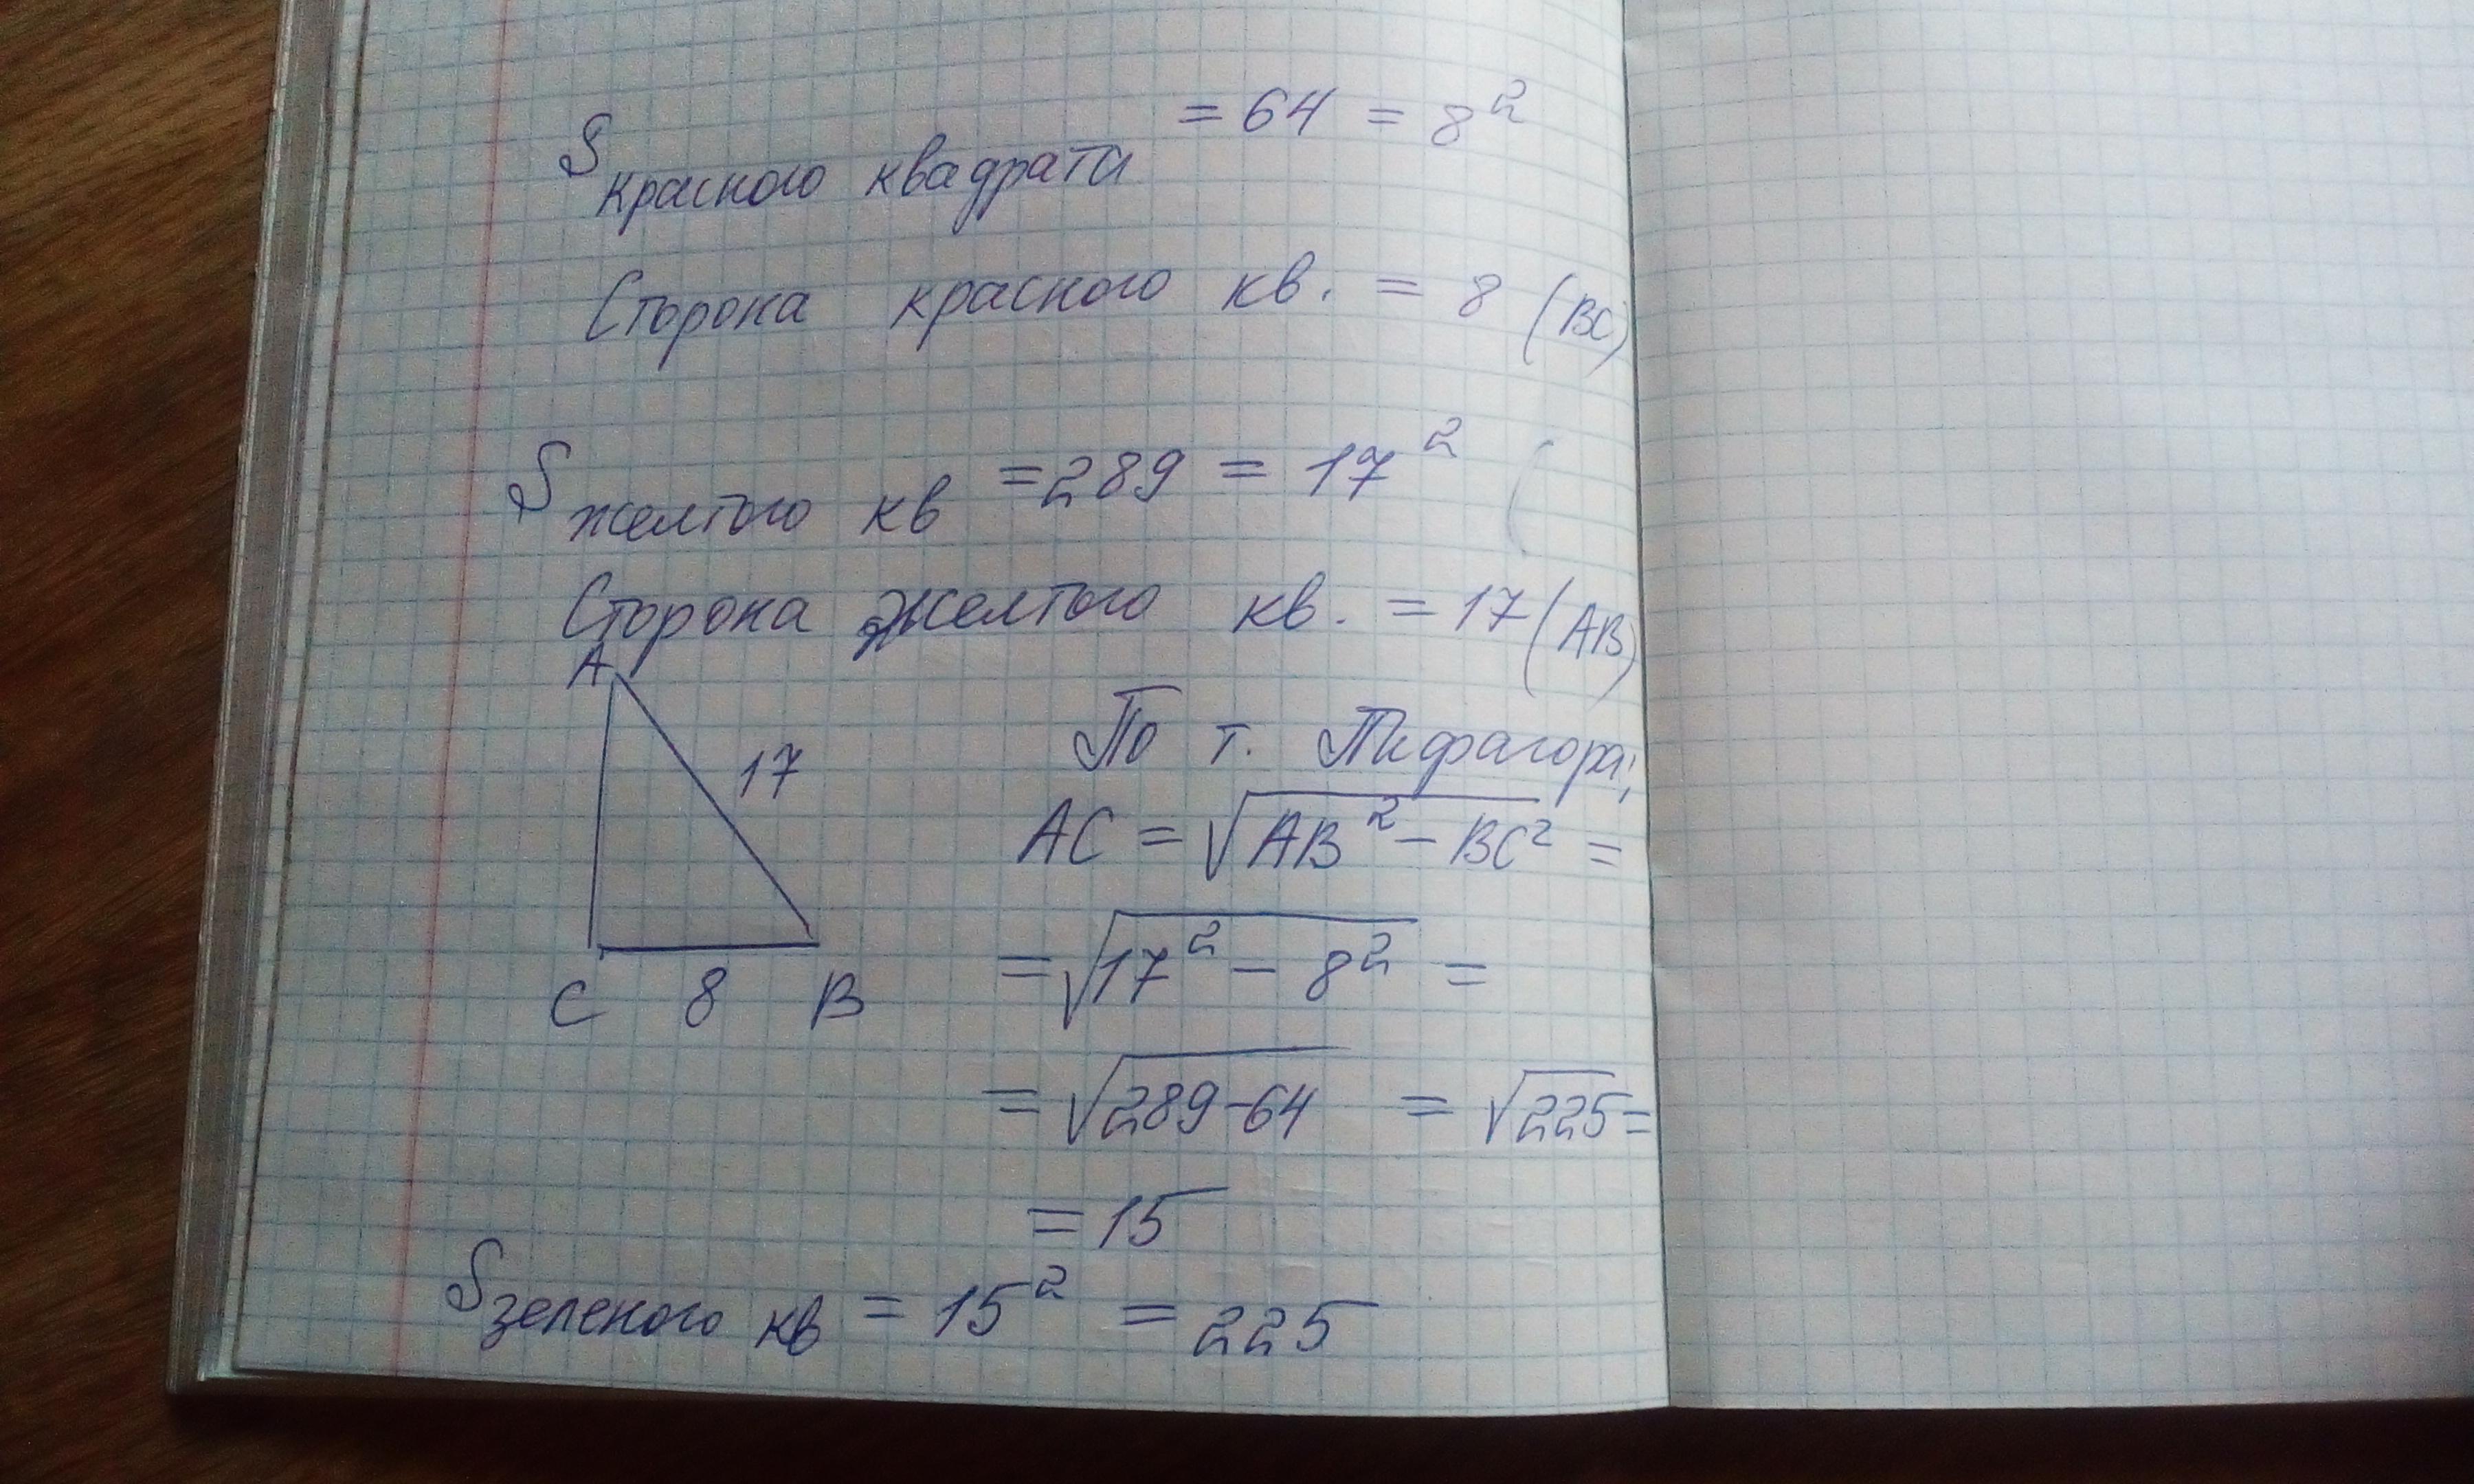 S красного квадрата = 64 = 8²
Сторона красного кв. = 8 (BC)
S желтого кв = 289 = 17² (
Сторона желтого кв. = 17 (AB)
A
17
C 8 B
По т. Пифагора;
AC = √AB² - BC² =
= √17² - 8² =
= √289-64 = √225 =
= 15
S зеленого кв = 15² = 225